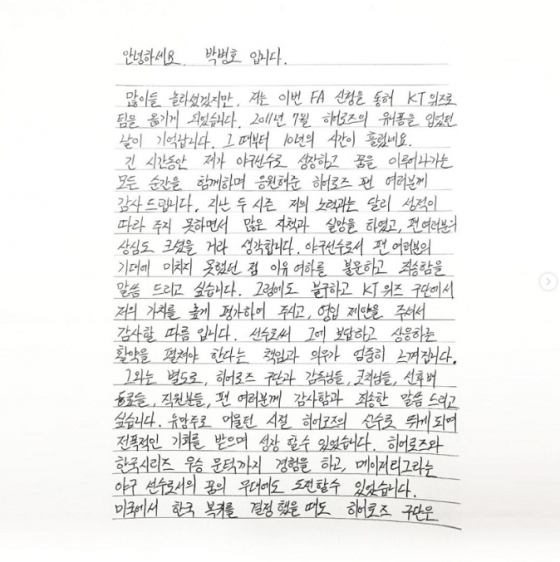 안녕하세요. 박병호 입니다.
많이들 놀라셨겠지만, 저는 이번 FA 신청을 통해 KT위즈로
팀을 옮기게 되었습니다. 2011년 7월 히어로즈의 유니폼을 입었던
날이 기억납니다. 그 때부터 10년의 시간이 흘렀네요.
긴 시간동안 제가 야구선수로 성장하고 꿈을 이루어나가는
모든 순간을 함께하며 응원해준 히어로즈 팬 여러분께
감사 드립니다. 지난 두 시즌 저의 노력과는 달리 성적이
따라 주지 못하면서 많은 자책과 실망을 하였고, 팬 여러분의
상심도 크셨을 거라 생각합니다. 야구선수로서 팬 여러분의
기대에 미치지 못했던 점 이유 여하를 불문하고 죄송함을
말씀 드리고 싶습니다. 그럼에도 불구하고 KT위즈 구단에서
저의 가치를 높게 평가하여 주시고, 영입 제안을 주셔서
감사할 따름 입니다. 선수로써 그에 보답하고 상응하는
활약을 펼쳐야 한다는 책임과 의무가 엄중히 느껴집니다.
그와는 별도로, 히어로즈 구단과 감독님들, 코치님들, 선후배
동료들, 직원분들, 팬 여러분께 감사함과 죄송한 말씀 드리고
싶습니다. 유망주로 머물던 시절 히어로즈의 선수로 뛰게 되며
전폭적인 기회를 받으며 성장 할 수 있었습니다. 히어로즈와
한국시리즈 우승 문턱까지 경험을 하고, 메이저리그라는
야구 선수로서의 꿈의 무대에도 도전할 수 있었습니다.
미국에서 한국 복귀를 결정 했을 때도 히어로즈 구단은